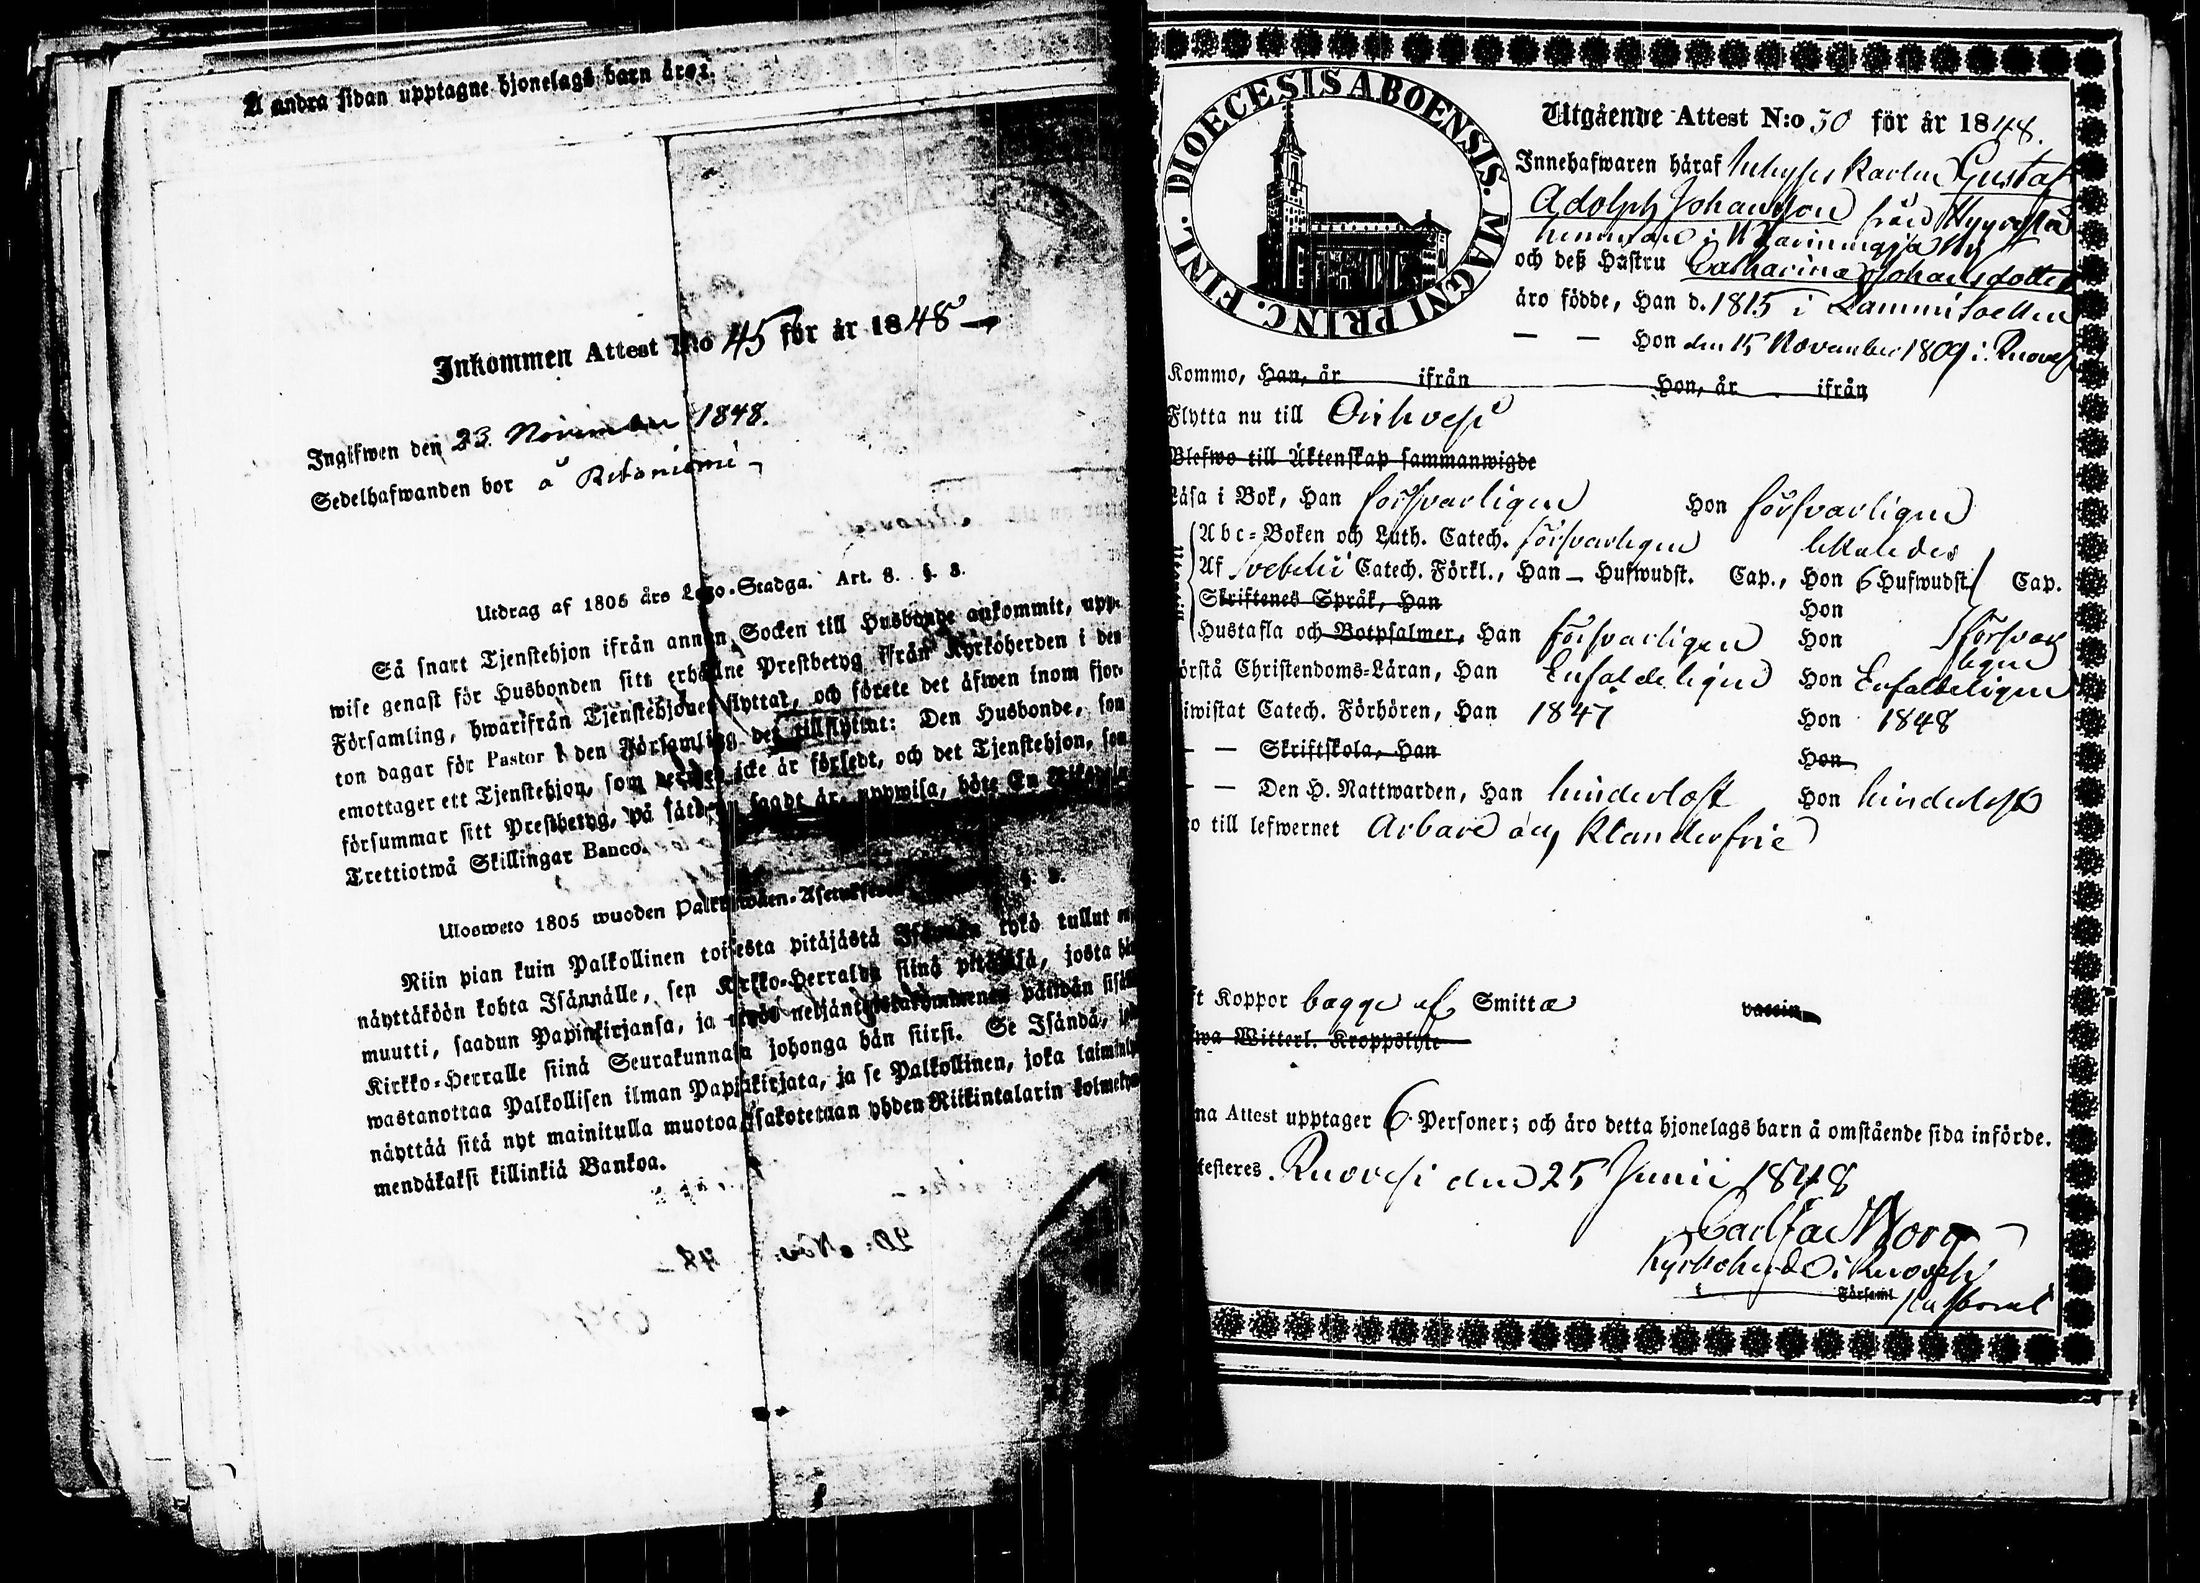 Å andra sidan upptagne hjonelags barn äro:
Inkommen Attest N:o 45 för år 1848
Ingifwen den 23 November 1848.
Sedelhafwanden bor å
Utdrag af 1805 års Lego-Stadga. Art. 8. §. 3.
Så snart Tjenstehjon ifrån annan Socken till Husbonde ankommit, upp-
wise genast för Husbonden sitt erhållne Prestbetyg ifrån Kyrkoherden i den
Församling, hwarifrån Tjenstehjonet flyttat, och förete det äfwen inom fjor-
ton dagar för Pastor i den Församling det tillflyttat: Den Husbonde, som
emottager ett Tjenstehjon, som dermed icke är försedt, och det Tjenstehjon, som
försummar sitt Prestbetyg, på sätt sagdt är, uppwisa, böte En Riksdaler
Trettiotwå Skillingar Banco.
Ulosweto 1805 wuoden Palkowäen-Asetuksesta §. 3.
Niin pian kuin Palkollinen toisesta pitäjästä Isännän tykö tullut on
näyttäköön kohta Isännälle, sen Kirkko-Herralda siinä pitäjäsä, josta hän
muutti, saadun Papinkirjansa, ja myös neljäntoistakymmenen päiwän sisällä
Kirkko-Herralle siinä Seurakunnasa johonga hän siirsi. Se Isändä, joka
wastanottaa Palkollisen ilman Papinkirjata, ja se Palkollinen, joka laiminlyö
näyttää sitä nyt mainitulla muotoa, sakotetaan yhden Riikintalarin kolmekym-
mendäkaksi killinkiä Bankoa.
DIOECESIS ABOENSIS. MAGNI PRINC. FINL.
Utgående Attest N:o 30 för år 1848.
Innehafwaren häraf Inhyses Karlen Gustaf
Adolph Johansson från
hemman i by
och deß Hustru Catharina Johansdotter
äro födde, Han d. 1815 i
— — Hon den 15 November 1809 i Ruovesi
Kommo, Han, år ifrån Hon, år ifrån
Flytta nu till Orihvesi
Blefwo till Äktenskap sammanwigde
Läsa i Bok, Han försvarligen Hon försvarligen
Abc-Boken och Luth. Catech. försvarligen likaledes
Af Svebelii Catech. Förkl., Han — Hufwudst. Cap., Hon 6 Hufwudst. Cap.
Skriftenes Språk, Han Hon
Hustafla och Botpsalmer, Han försvarligen Hon försvar
ligen
örstå Christendoms-Läran, Han Enfaldeligen Hon Enfaldeligen
iwistat Catech. Förhören, Han 1847 Hon 1848
— — Skriftskola, Han Hon
— — Den H. Nattwarden, Han hinderlöst Hon hinderlöst
o till lefwernet Ärbare och klanderfrie
ft Koppor bägge af Smitta vaccin
wa Witterl. Kroppslyte
na Attest upptager 6 Personer; och äro detta hjonelags barn å omstående sida införde.
testeres. Ruovesi den 25 Junii 1848
Carl Jac
Kyrkoherde i Ruovesi
Församl